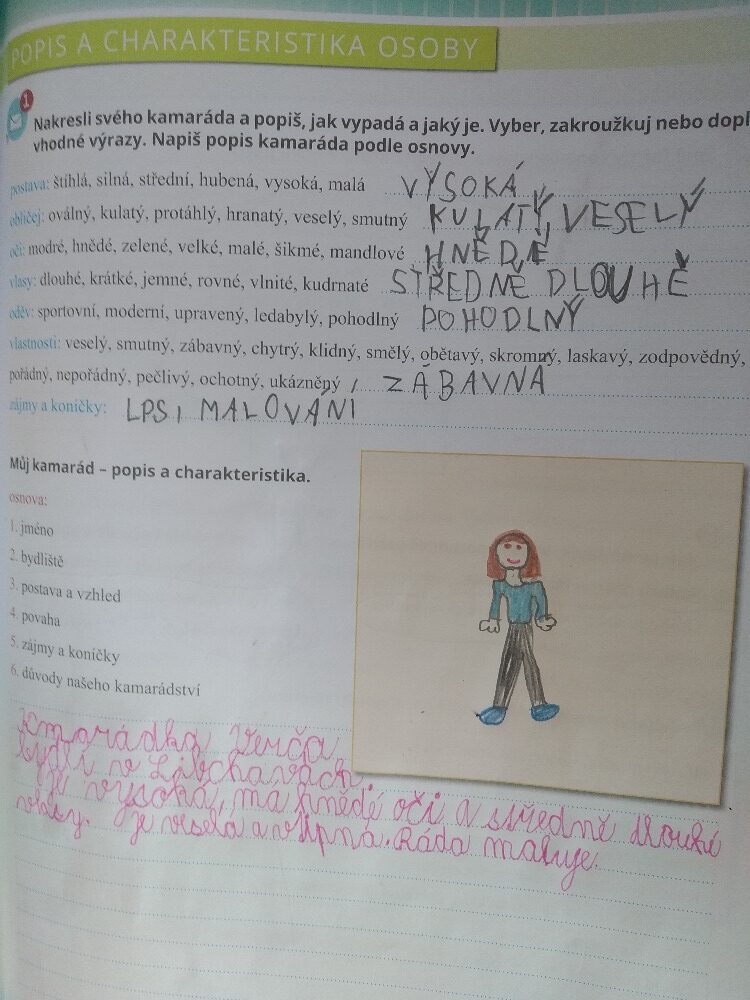 POPIS A CHARAKTERISTIKA OSOBY
1
Nakresli svého kamaráda a popiš, jak vypadá a jaký je. Vyber, zakroužkuj nebo dopl
vhodné výrazy. Napiš popis kamaráda podle osnovy.
postava: štíhlá, silná, střední, hubená, vysoká, malá VYSOKÁ
obličej: oválný, kulatý, protáhlý, hranatý, veselý, smutný KULATÝ, VESELÝ
oči: modré, hnědé, zelené, velké, malé, šikmé, mandlové HNĚDÉ
vlasy: dlouhé, krátké, jemné, rovné, vlnité, kudrnaté STŘEDNĚ DLOUHÉ
oděv: sportovní, moderní, upravený, ledabylý, pohodlný POHODLNÝ
vlastnosti: veselý, smutný, zábavný, chytrý, klidný, smělý, obětavý, skromný, laskavý, zodpovědný,
pořádný, nepořádný, pečlivý, ochotný, ukázněný, ZÁBAVNÁ
zájmy a koníčky: LPS, MALOVÁNI
Můj kamarád – popis a charakteristika.
osnova:
1. jméno
2. bydliště
3. postava a vzhled
4. povaha
5. zájmy a koníčky
6. důvody našeho kamarádství
Kmarádka Verča
bydlí v Libchavách,
je vysoká, ma hnědé oči a středně dlouhé
vlasy. je veselá a vtipná. Ráda maluje.